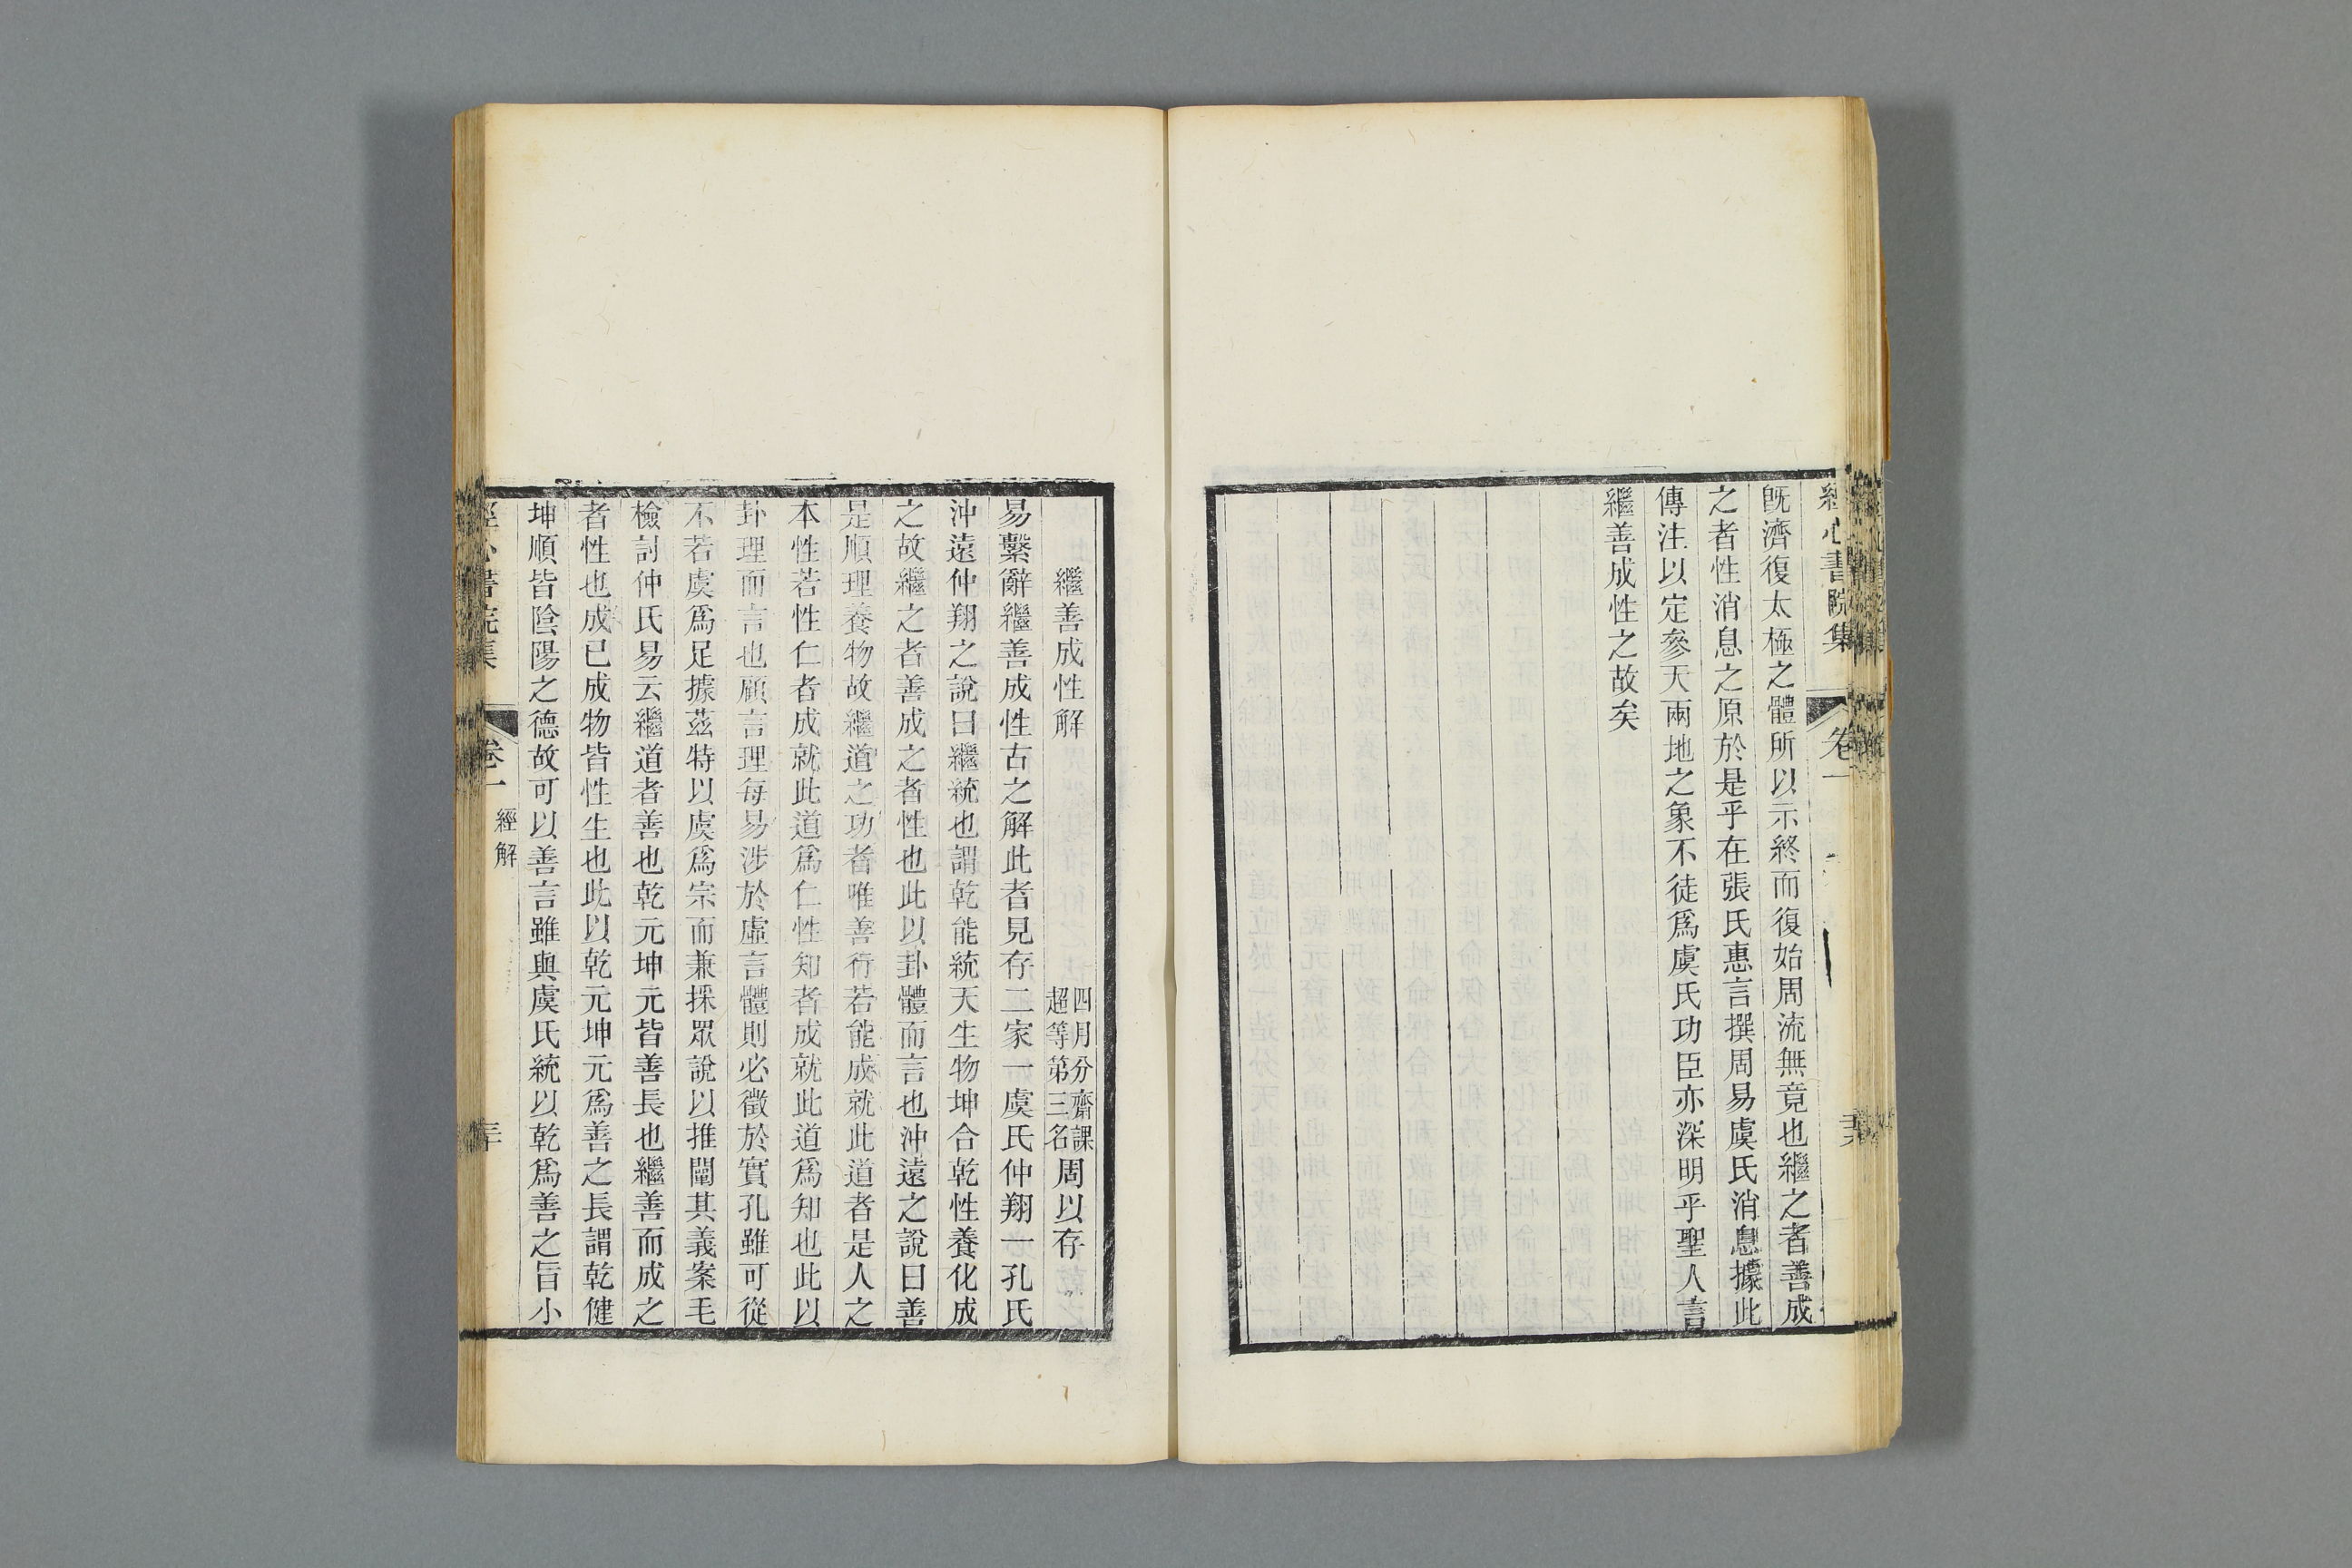 心書院集
卷一
既濟復太極之體所以示終而復始周流無竟也繼之者善成
之者性消息之原於是乎在張氏惠言撰周易虞氏消息據此
傳注以定參天兩地之象不徒爲虞氏功臣亦深明乎聖人言
繼善成性之故矣
繼善成性解
四月分齋課
超等第三名
周以存
易繫辭繼善成性古之解此者見存二家一虞氏仲翔一孔氏
沖遠仲翔之說曰繼統也謂乾能統天生物坤合乾性養化成
之故繼之者善成之者性也此以卦體而言也沖遠之說曰善
是順理養物故繼道之功者唯善行若能成就此道者是人之
本性若性仁者成就此道爲仁性知者成就此道爲知也此以
卦理而言也顧言理每易涉於虛言體則必徵於實孔雖可從
不若虞爲足據茲特以虞爲宗而兼採眾說以推闡其義案毛
檢討仲氏易云繼道者善也乾元坤元皆善長也繼善而成之
者性也成已成物皆性生也此以乾元坤元爲善之長謂乾健
坤順皆陰陽之德故可以善言雖與虞氏統以乾爲善之旨小
書院集
卷一
經解